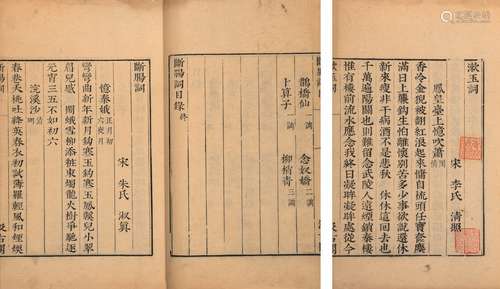 漱玉詞
宋 李氏 清照
鳳凰臺上憶吹簫
香冷金猊被翻紅浪起來慵自梳頭任寶奩塵
滿日上簾鈎生怕離懷別苦多少事欲說還休
新來瘦非干病酒不是悲秋 休休這回去也
千萬遍陽關也則難留念武陵人遠煙鎖秦樓
惟有樓前流水應念我終日凝眸凝眸處從今
漱玉詞
鵲橋仙 一調 念奴嬌 二調
卜算子 一調 柳梢青 三調
斷腸詞目錄 終
斷腸詞
宋 朱氏 淑真
憶秦娥 正月初六夜月
彎彎曲新年新月鈎寒玉鈎寒玉鳳鞋兒小翠
眉兒蹙 鬧蛾雪柳添粧束燭龍火樹爭馳逐
元宵三五不如初六
浣溪沙 清明
春巷夭桃吐絳英春衣初試薄羅輕風和煙煖
斷腸詞
汲古閣